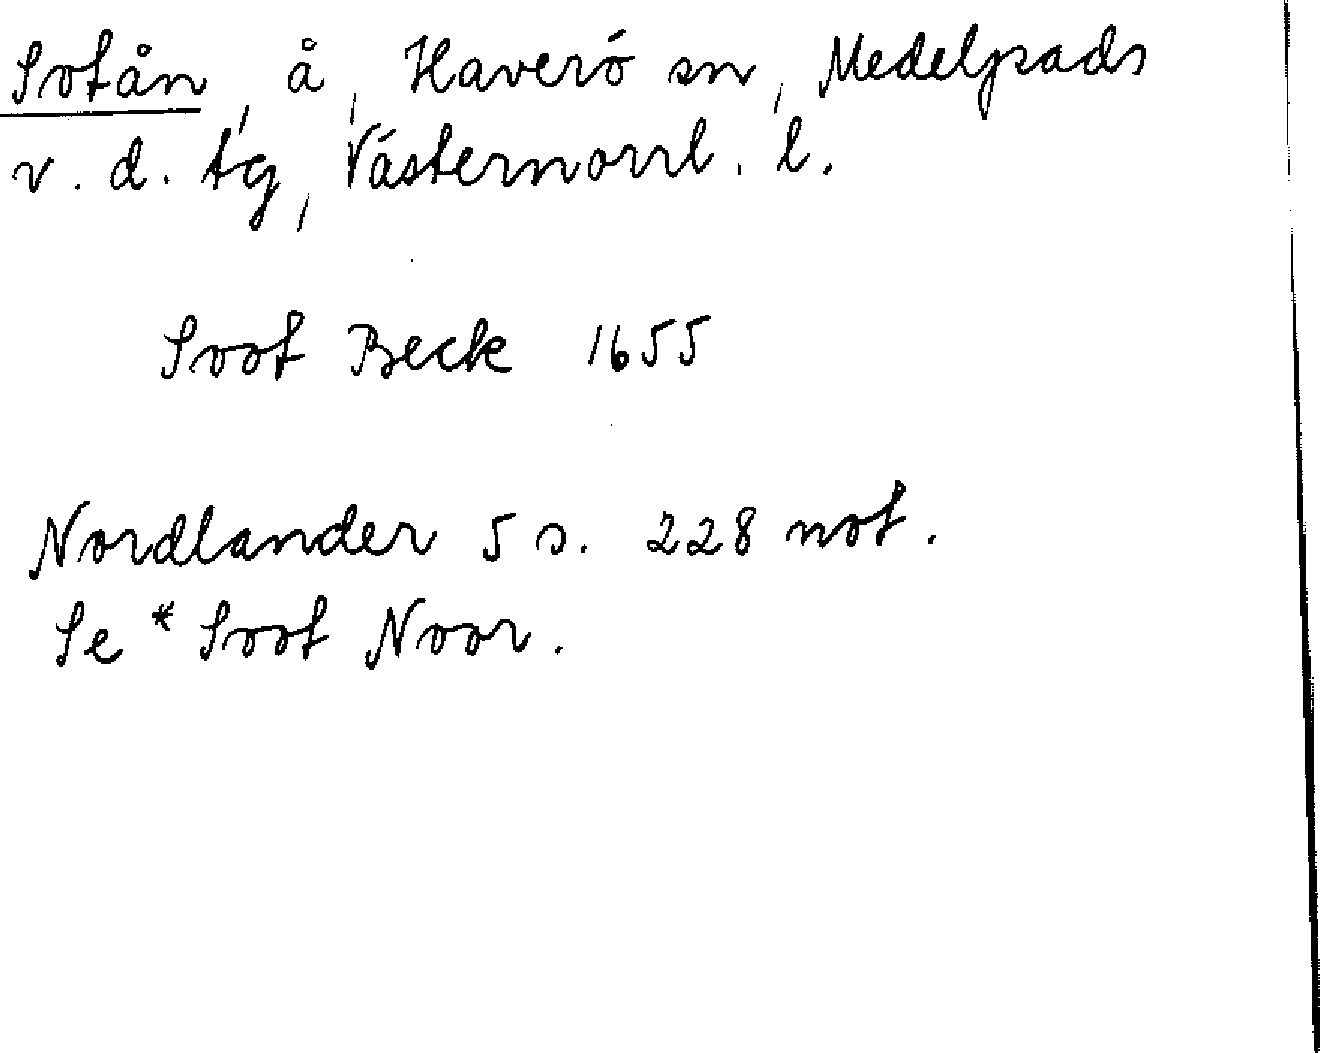 Sotån, å, Haverö sn, Medelpads
v. d. tg, Västernorrl. l.
Soot Beck 1655
Nordlander 5 s. 228 not.
Se * Soot Noor.